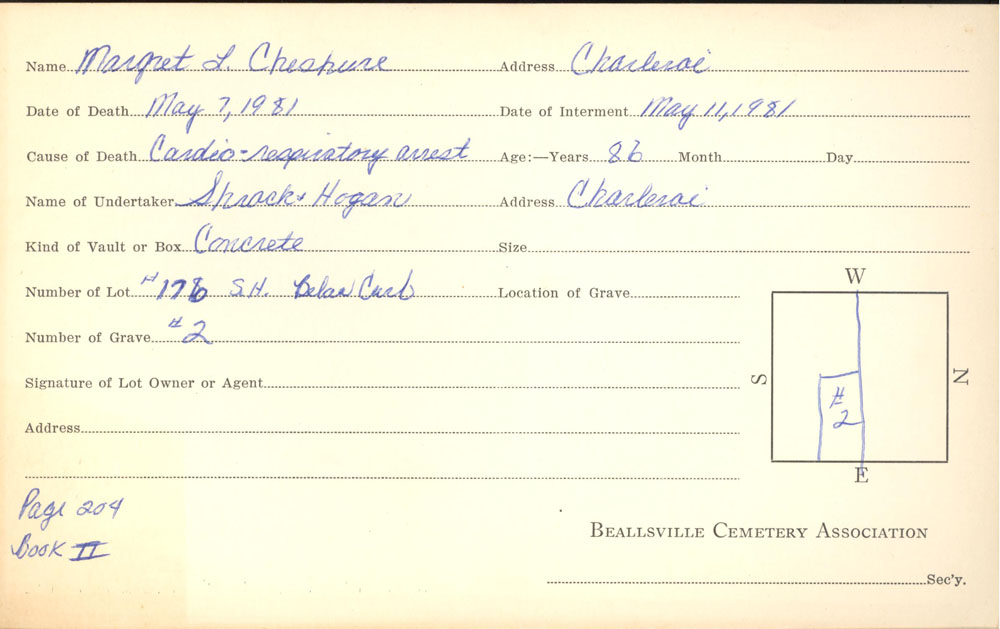 Name Margret L. Cheshure Address Charleroi
Date of Death May 7, 1981 Date of Interment May 11, 1981
Cause of Death Cardio-respiratory arrest Age:—Years 86 Month Day
Name of Undertaker Shrock & Hogan Address Charleroi
Kind of Vault or Box Concrete Size
Number of Lot #178 S.H. Curb Location of Grave
Number of Grave #2
Signature of Lot Owner or Agent
Address
W
S
N
E
#
2
Page 204
Book II
BEALLSVILLE CEMETERY ASSOCIATION
Sec'y.